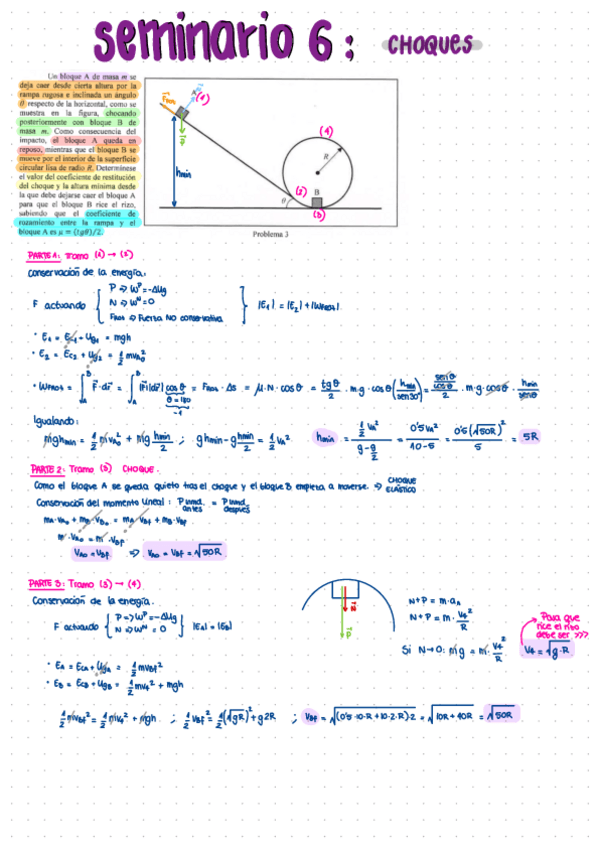 seminario 6: CHOQUES
Un bloque A de masa m se
deja caer desde cierta altura por la
rampa rugosa e inclinada un ángulo
θ respecto de la horizontal, como se
muestra en la figura, chocando
posteriormente con bloque B de
masa m. Como consecuencia del
impacto, el bloque A queda en
reposo, mientras que el bloque B se
mueve por el interior de la superficie
circular lisa de radio R. Determínese
el valor del coeficiente de restitución
del choque y la altura mínima desde
la que debe dejarse caer el bloque A
para que el bloque B rice el rizo,
sabiendo que el coeficiente de
rozamiento entre la rampa y el
bloque A es μ = (tgθ)/2.
A (1)
hmin
(4)
R
(2) B
θ
(3)
Problema 3
PARTE 1: Tramo (1) → (2)
Conservación de la energía:
F actuando { P => Wᴾ = -ΔUg
N => Wᴺ = 0
FROZ => Fuerza NO conservativa
|E1| = |E2| + |WFROZ|
· E1 = Ec1 + Ug1 = mgh
· E2 = Ec2 + Ug2 = 1/2 mvA0²
θ = 180
-1
Igualando:
mghmin = 1/2 mvA0² + mg hmin/2 ; ghmin - g hmin/2 = 1/2 vA² hmin = (1/2 vA²)/(g - g/2) = 0'5 vA²/(10-5) = 0'5(√50R)²/5 = 5R
PARTE 2: Tramo (3) CHOQUE.
Como el bloque A se queda quieto tras el choque y el bloque B empieza a moverse => CHOQUE ELÁSTICO
Conservación del momento lineal: P und. antes = P und. después
mA·vA0 + mB·vB0 = mA·vAf + mB·vBf
m·vA0 = m·vBf
vA0 = vBf => vA0 = vBf = √50R
PARTE 3: Tramo (3) → (4)
Conservación de la energía.
F actuando { P => Wᴾ = -ΔUg
N => Wᴺ = 0
|EA| = |EB|
· EA = EcA + UgA = 1/2 mvBf²
· EB = EcB + UgB = 1/2 mv4² + mgh
N+P = m·an
N+P = m·v4²/R
Si N→0: mg = m·v4²/R
v4 = √g·R
Para que
rice el rizo
debe ser >>>
1/2 mvBf² = 1/2 mv4² + mgh ; 1/2 vBf² = 1/2(√gR)² + g2R ; vBf = √(0'5·10·R + 10·2·R)·2 = √10R + 40R = √50R